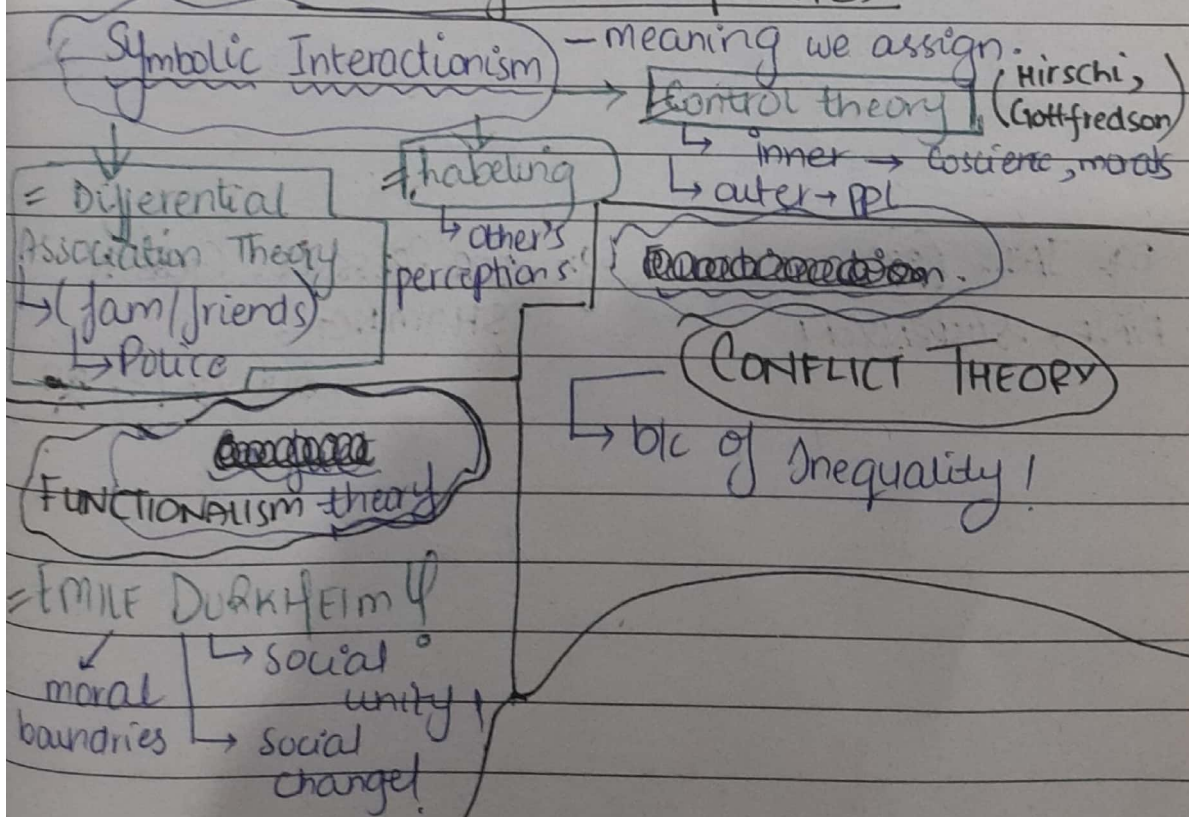 Symbolic Interactionism - meaning we assign.
Control theory (Hirschi, Gottfredson)
↳ inner → Coscienc, morals
↳ outer → PPL
= Differential
Association Theory
↳ (fam/friends)
↳ Police
Labeling
↳ other's
perceptions
CONFLICT THEORY
↳ b/c of Inequality!
FUNCTIONALISM theory
= EMILE DURKHEIM
moral
boundries
↳ social
unity!
↳ social
change!